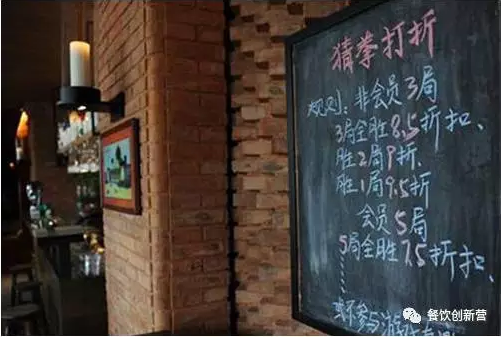 猜拳打折
规则：非会员3局
3局全胜8.5折扣、
胜2局9折、
胜1局9.5折
会员5局
5局全胜7.5折扣、
……
或不参与游戏
餐饮创新营